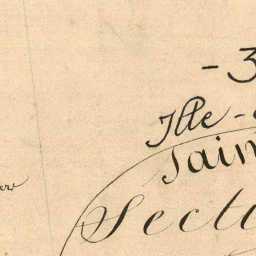 -3
Ille-
Sain
Secti